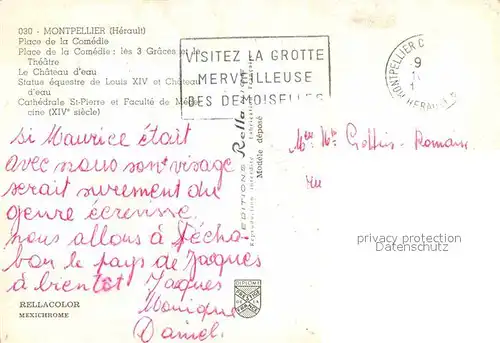 030 - MONTPELLIER (Hérault)
Place de la Comédie
Place de la Comédie : les 3 Grâces et le
Théâtre
Le Château d'eau
Statue équestre de Louis XIV et Château
d'eau
Cathédrale St-Pierre et Faculté de Méde-
cine (XIVe siècle)
VISITEZ LA GROTTE
MERVEILLEUSE
DES DEMOISELLES
MONTPELLIER
9
HERAULT
si Maurice était
avec nous son visage
serait surement du
genre écrevisse
nous allons à
le pays de Jaques
à bientot Jaques
Monique
Daniel.
EDITIONS Rella
Reproduction interdite
Modèle déposé
DIPLOME
PRESTIGE
DE LA
FRANCE
RELLACOLOR
MEXICHROME
privacy protection
Datenschutz